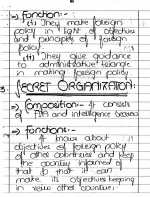 =) Function:-
(i) They make foreign
policy in light of objectives
and principles of foreign
policy.
(ii) They give guidance
to administrative triangle
in making foreign policy
3. SECRET ORGANIZATION:
=) Composition:- It consists
of FIA and intelligence bureau
=) Functions:-
It knows about
objectives of foreign policy
of other countries and keep
the country informed of
that so that it can
make its objectives keeping
in view other countries.